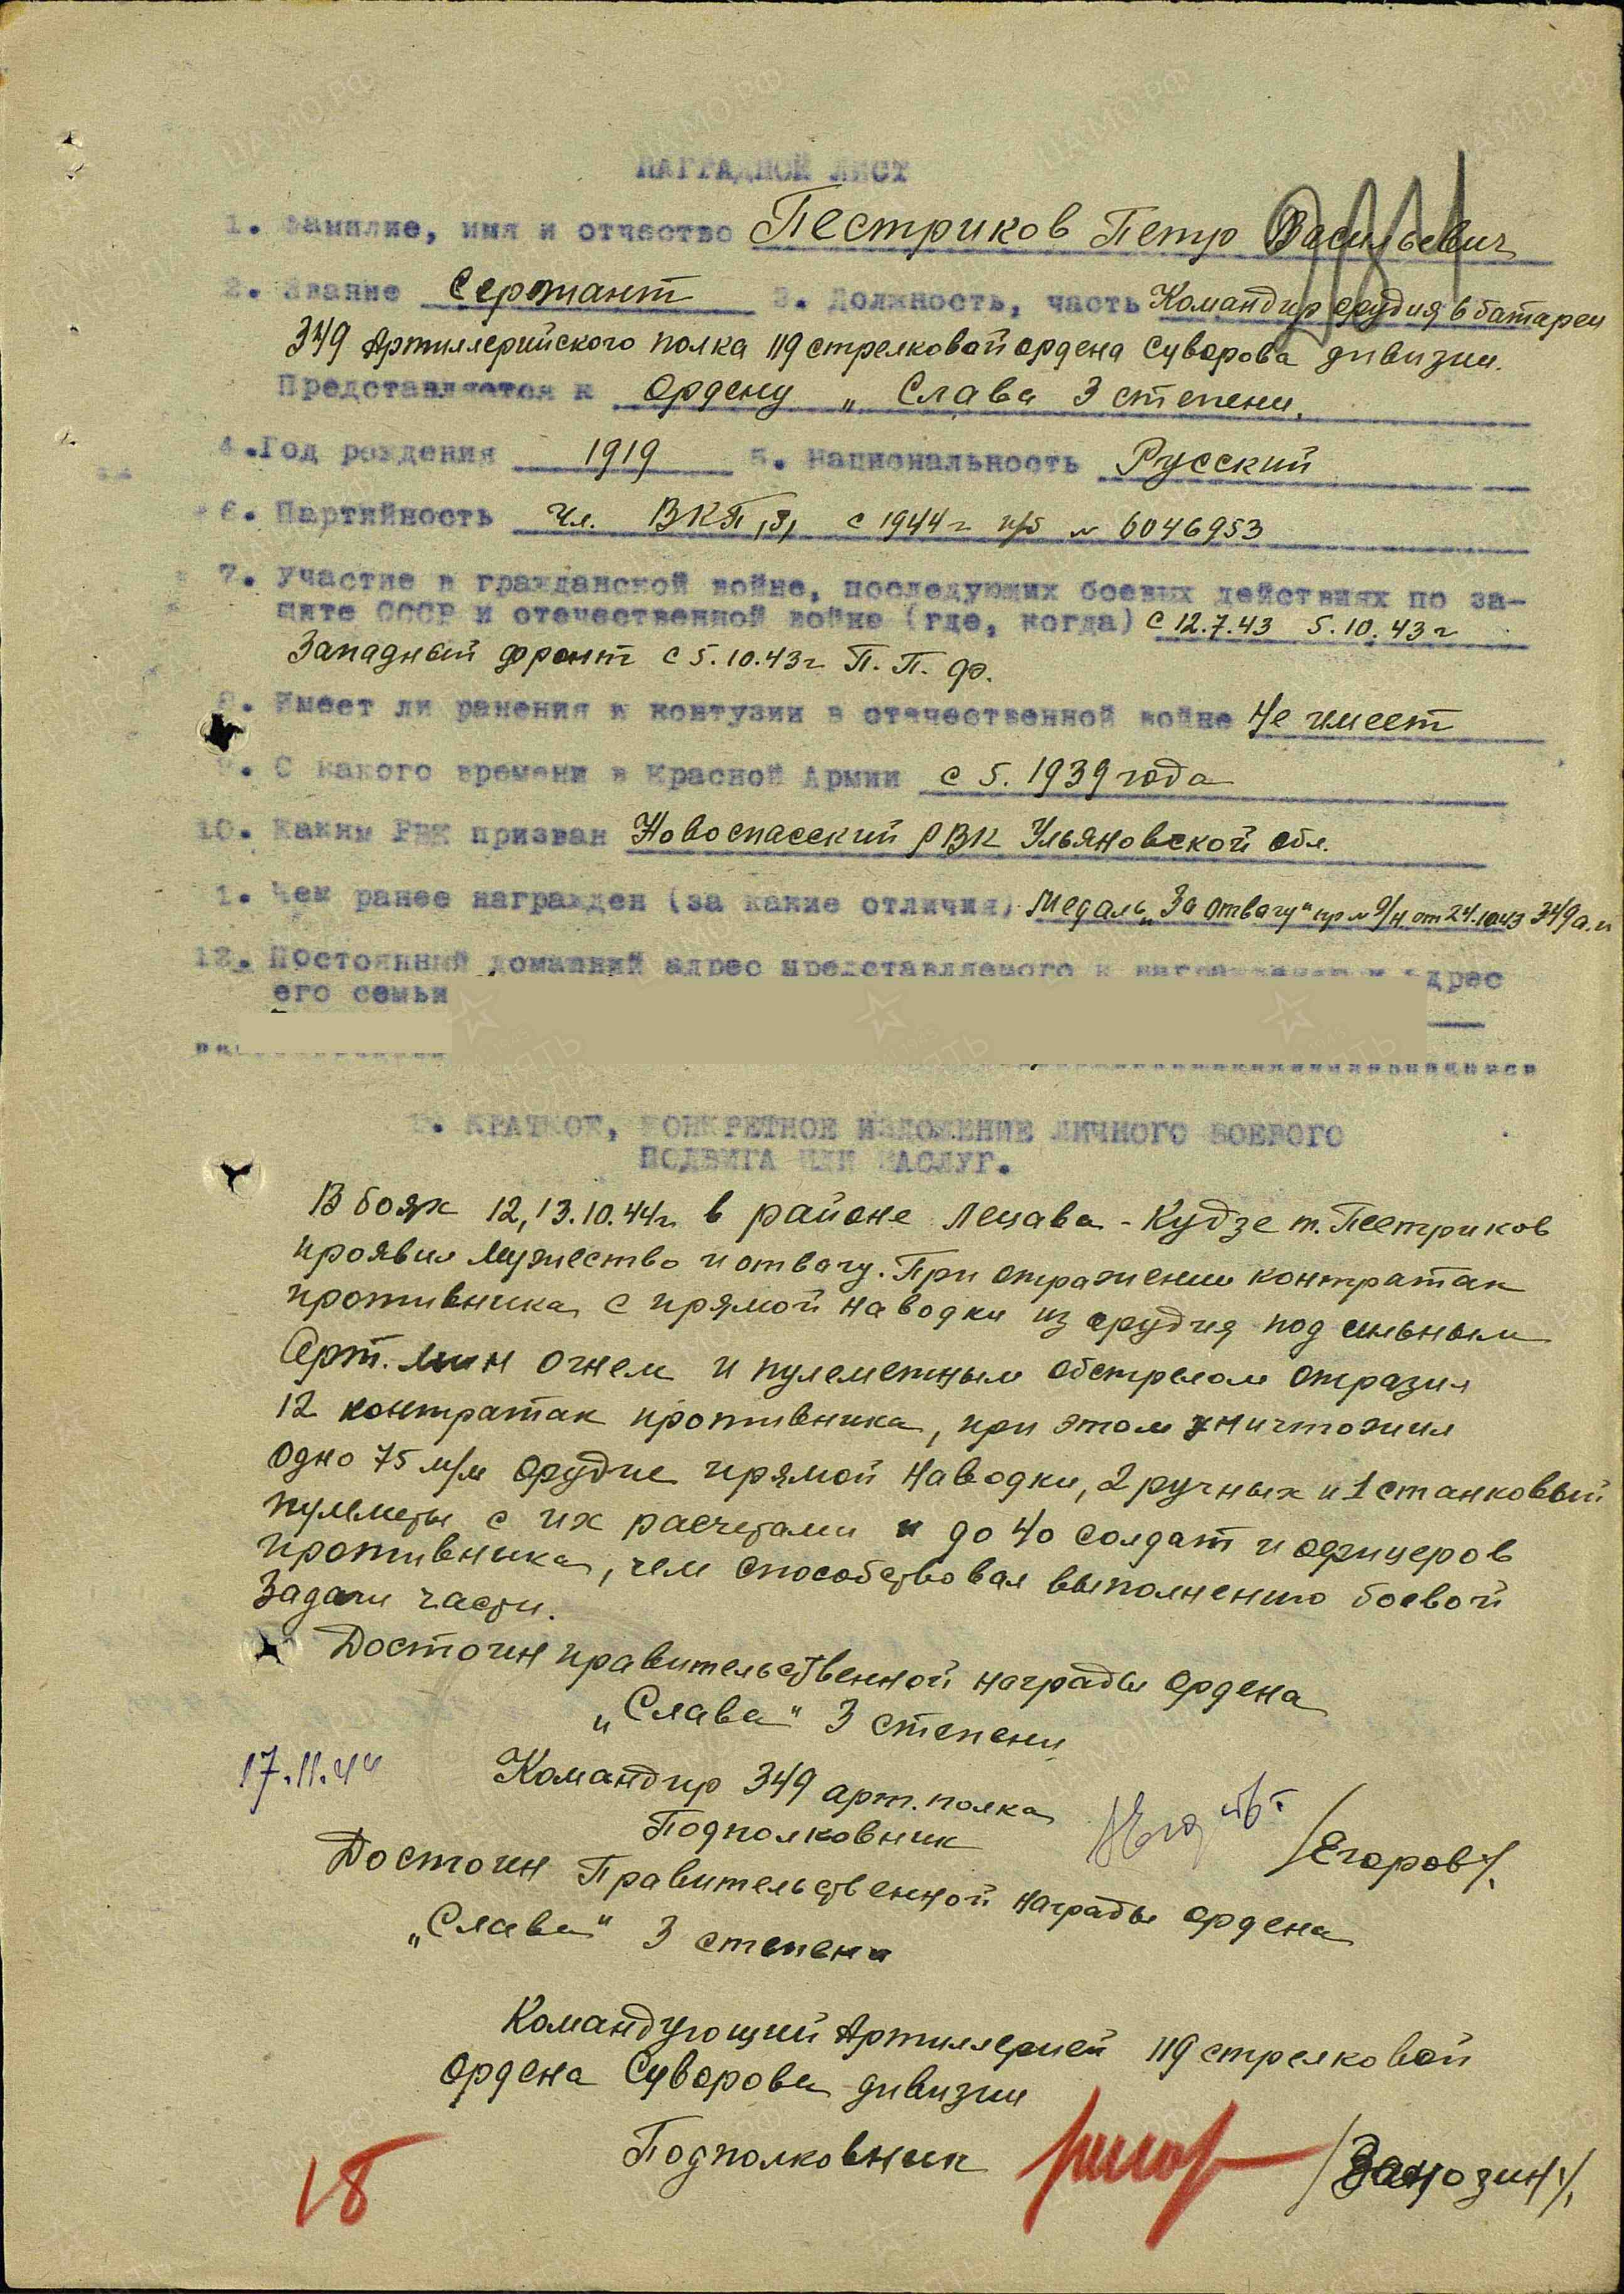 НАГРАДНОЙ ЛИСТ
1. Фамилие, имя и отчество Пестриков Петр Васильевич
2. Звание Сержант 3. Должность, часть Командир орудия 6 батареи
349 Артиллерийского полка 119 стрелковой ордена Суворова дивизии.
Представляется к Ордену „ Слава 3 степени.
4. Год рождения 1919 5. Национальность Русский
6. Партийность Чл. ВКП(б) с 1944 г п/б № 6046953
7. Участие в гражданской войне, последующих боевых действиях по за-
щите СССР и отечественной войне (где, когда) с 12.7.43 5.10.43 г
Западный фронт с 5.10.43 г П. П. ф.
8. Имеет ли ранения и контузии в отечественной войне Не имеет
9. С какого времени в Красной Армии с 5. 1939 года
10. Каким РВК призван Новоспасский РВК Ульяновской обл.
1. Чем ранее награжден (за какие отличия) Медаль „За отвагу" пр № 9/н от 24.10.43 349 а.п
12. Постоянный домашний адрес представляемого к награждению и адрес
его семьи
КРАТКОЕ, КОНКРЕТНОЕ ИЗЛОЖЕНИЕ ЛИЧНОГО БОЕВОГО
ПОДВИГА ИЛИ ЗАСЛУГ.
В боях 12,13.10.44г в районе Лецава - Кудзе т. Пестриков
проявил мужество и отвагу. При отражении контратак
противника с прямой наводки из орудия под сильным
Арт. мин огнем и пулеметным обстрелом отразил
12 контратак противника, при этом уничтожил
одно 75 м/м орудие прямой наводки, 2 ручных и 1 станковый
пулеметы с их расчетами и до 40 солдат и офицеров
противника, чем способствовал выполнению боевой
задачи части.
Достоин правительственной награды ордена
„Слава" 3 степени
17.11.44 Командир 349 арт. полка
Подполковник /Егоров/.
Достоин Правительственной награды ордена
„Слава" 3 степени
Командующий Артиллерией 119 стрелковой
Ордена Суворова дивизии
Подполковник
18